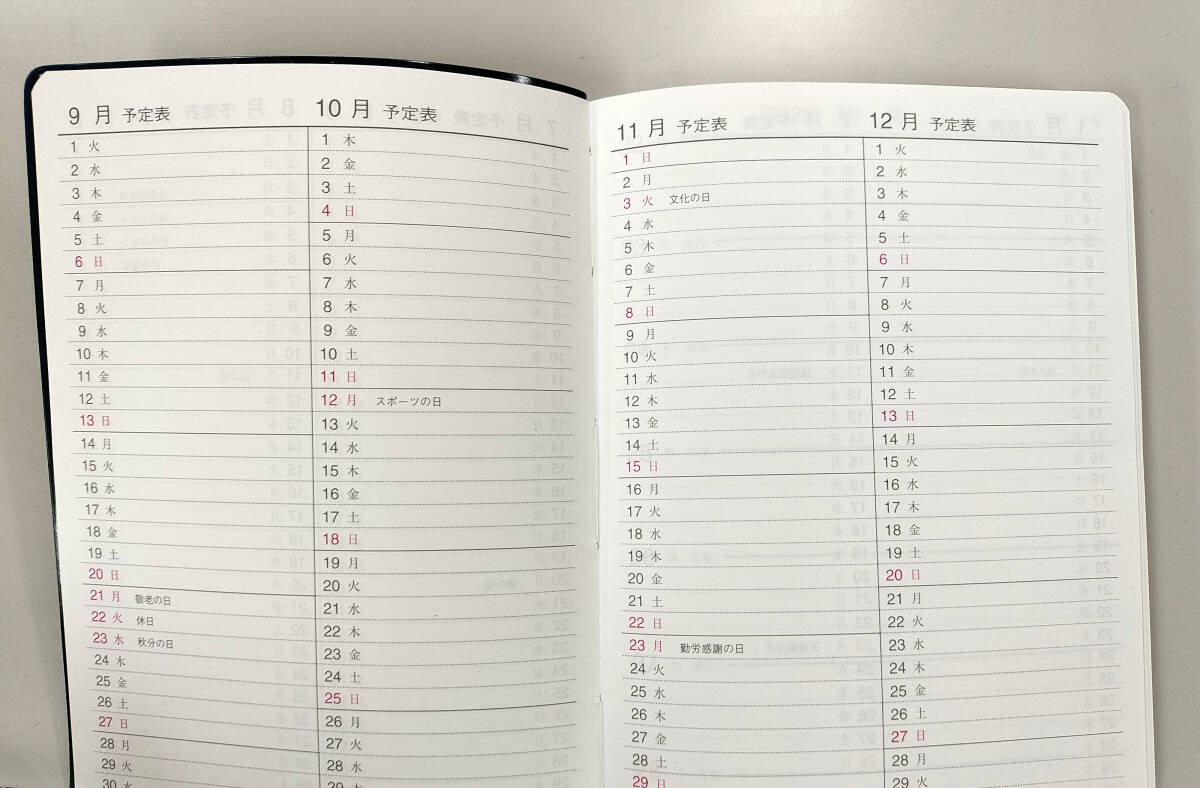 9月 予定表
1 火
2 水
3 木
4 金
5 土
6 日
7 月
8 火
9 水
10 木
11 金
12 土
13 日
14 月
15 火
16 水
17 木
18 金
19 土
20 日
21 月 敬老の日
22 火 休日
23 水 秋分の日
24 木
25 金
26 土
27 日
28 月
29 火
30 水
10月 予定表
1 木
2 金
3 土
4 日
5 月
6 火
7 水
8 木
9 金
10 土
11 日
12 月 スポーツの日
13 火
14 水
15 木
16 金
17 土
18 日
19 月
20 火
21 水
22 木
23 金
24 土
25 日
26 月
27 火
28 水
29 木
11月 予定表
1 日
2 月
3 火 文化の日
4 水
5 木
6 金
7 土
8 日
9 月
10 火
11 水
12 木
13 金
14 土
15 日
16 月
17 火
18 水
19 木
20 金
21 土
22 日
23 月 勤労感謝の日
24 火
25 水
26 木
27 金
28 土
29 日
12月 予定表
1 火
2 水
3 木
4 金
5 土
6 日
7 月
8 火
9 水
10 木
11 金
12 土
13 日
14 月
15 火
16 水
17 木
18 金
19 土
20 日
21 月
22 火
23 水
24 木
25 金
26 土
27 日
28 月
29 火